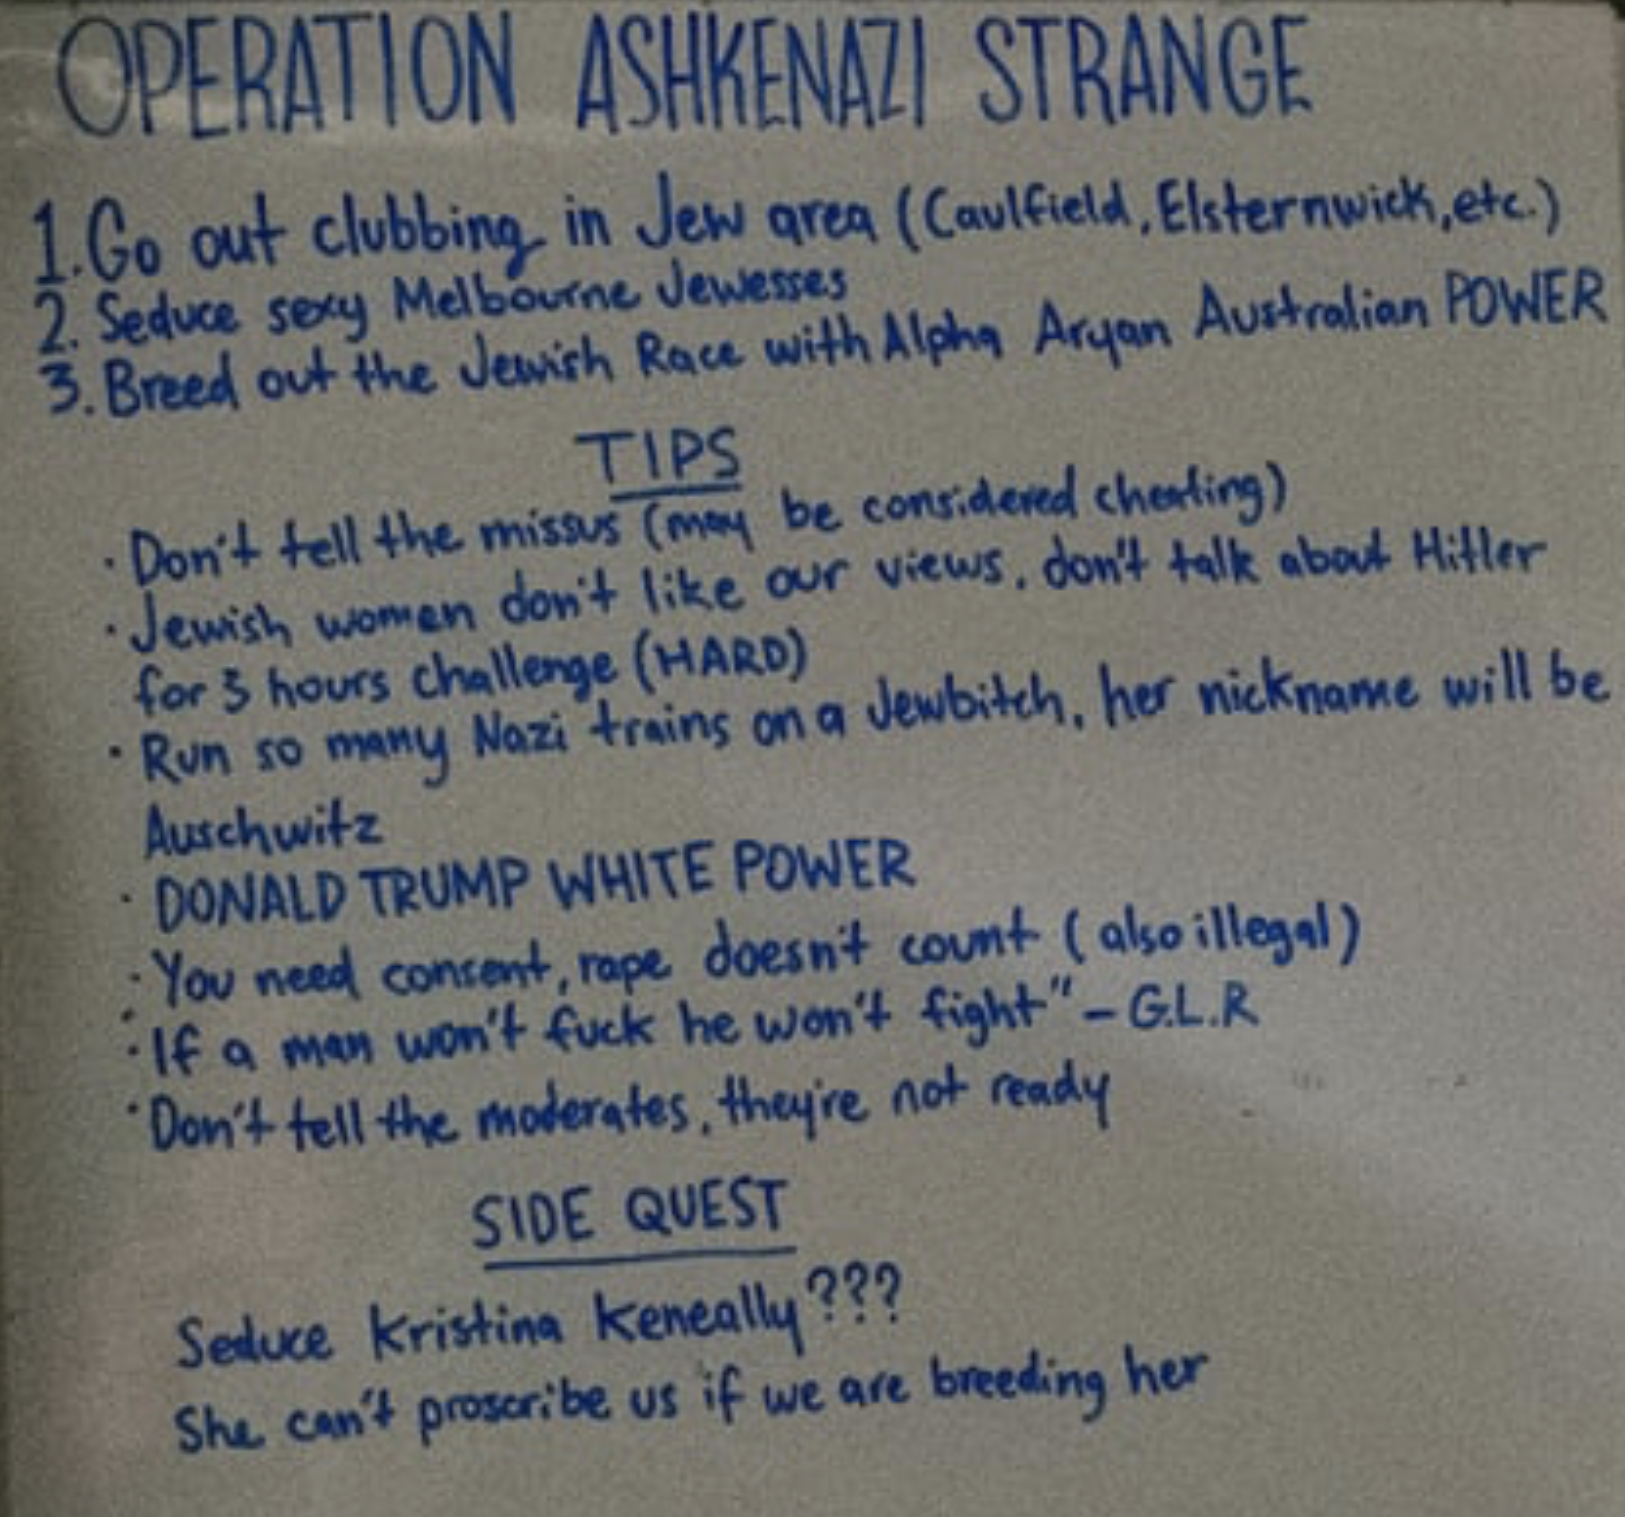 OPERATION ASHKENAZI STRANGE
1. Go out clubbing in Jew area (Caulfield, Elsternwick, etc.)
2. Seduce sexy Melbourne Jewesses
3. Breed out the Jewish Race with Alpha Aryan Australian POWER
TIPS
· Don't tell the missus (may be considered cheating)
· Jewish women don't like our views, don't talk about Hitler
for 3 hours challenge (HARD)
· Run so many Nazi trains on a Jewbitch, her nickname will be
Auschwitz
· DONALD TRUMP WHITE POWER
· You need consent, rape doesn't count (also illegal)
· "If a man won't fuck he won't fight" – G.L.R
· Don't tell the moderates, they're not ready
SIDE QUEST
Seduce Kristina Keneally???
She can't proscribe us if we are breeding her